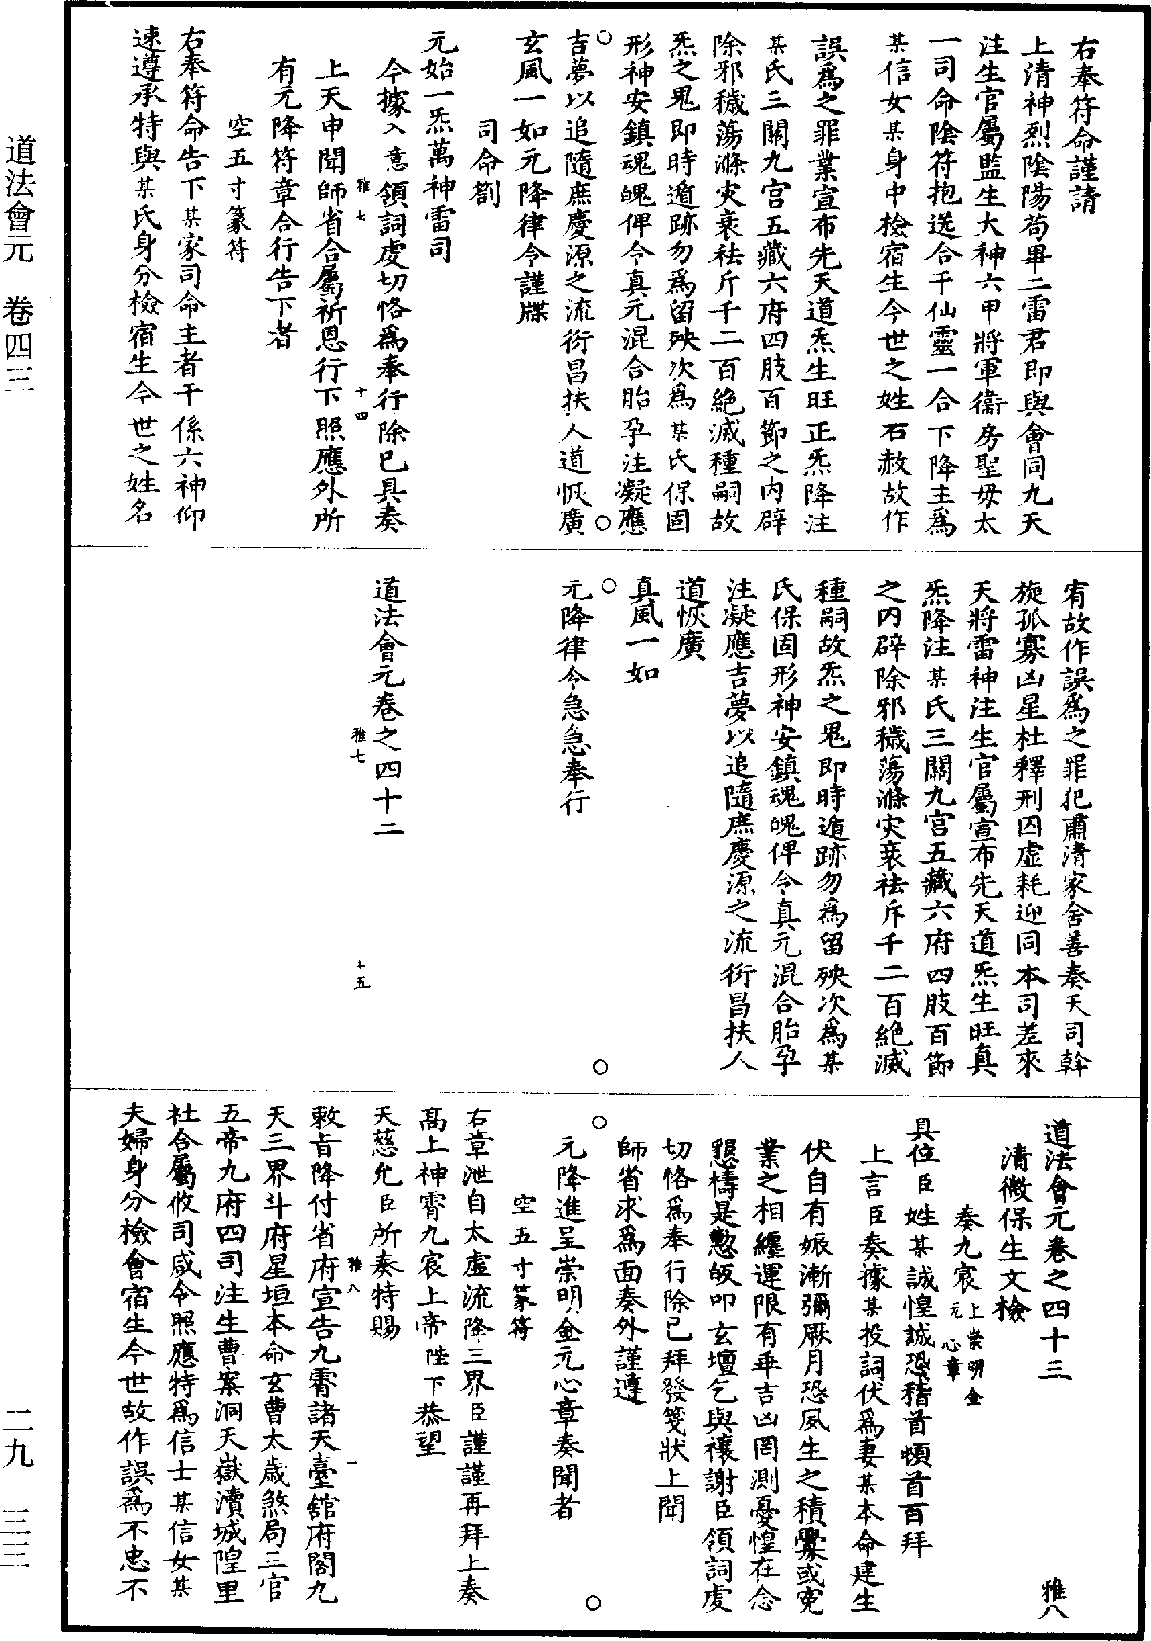 右奉符命謹請
上清神烈陰陽荀畢二雷君即與會同九天
注生官屬監生大神六甲將軍衛房聖母太
一司命陰符抱送合千仙靈一合下降主為
某信女某身中檢宿生今世之姓石赦故作
誤為之罪業宣布先天道炁生旺正炁降注
某氏三關九宮五藏六府四肢百節之內辟
除邪穢蕩滌灾衰袪斥千二百絕滅種嗣故
炁之鬼即時遁跡勿為留殃次為某氏保固
形神安鎮魂魄俾令真元混合胎孕注凝應
吉夢以追隨庶慶源之流衍昌扶人道恢廣
玄風一如元降律令謹牒
司命劄
元始一炁萬神雷司
今據入意領詞虔切恪為奉行除已具奏
上天申聞師省合屬祈恩行下照應外所
有元降符章合行告下者
空五寸篆符
右奉符命告下某家司命主者干係六神仰
速遵承特與某氏身分檢宿生今世之姓名
雅七
十四
宥故作誤為之罪犯肅清家舍善奏天司斡
旋孤寡凶星杜釋刑囚虛耗迎同本司差來
天將雷神注生官屬宣布先天道炁生旺真
炁降注某氏三關九宮五藏六府四肢百節
之內辟除邪穢蕩滌灾衰袪斥千二百絕滅
種嗣故炁之鬼即時遁跡勿為留殃次為某
氏保固形神安鎮魂魄俾令真元混合胎孕
注凝應吉夢以追隨庶慶源之流衍昌扶人
道恢廣
真風一如
元降律令急急奉行
道法會元卷之四十二
雅七
十五
道法會元卷之四十三
雅八
清微保生文檢
奏九宸上崇明金元心章
具位臣姓某誠惶誠恐稽首頓首百拜
上言臣奏據某投詞伏為妻某本命建生
伏自有娠漸彌厥月恐夙生之積釁或寃
業之相纏運限有乖吉凶罔測憂惶在念
懇禱是懃皈叩玄壇乞與禳謝臣領詞虔
切恪為奉行除已拜發箋狀上聞
師省求為面奏外謹遵
元降進呈崇明金元心章奏聞者
空五寸篆符
右章泄自太虛流降三界臣謹謹再拜上奏
高上神霄九宸上帝陛下恭望
天慈允臣所奏特賜
敕旨降付省府宣告九霄諸天臺館府閣九
天三界斗府星垣本命玄曹太歲煞局三官
五帝九府四司注生曹案洞天嶽瀆城隍里
社合屬攸司咸令照應特為信士某信女某
夫婦身分檢會宿生今世故作誤為不忠不
雅八
一
道法會元　卷四三
二九　三三